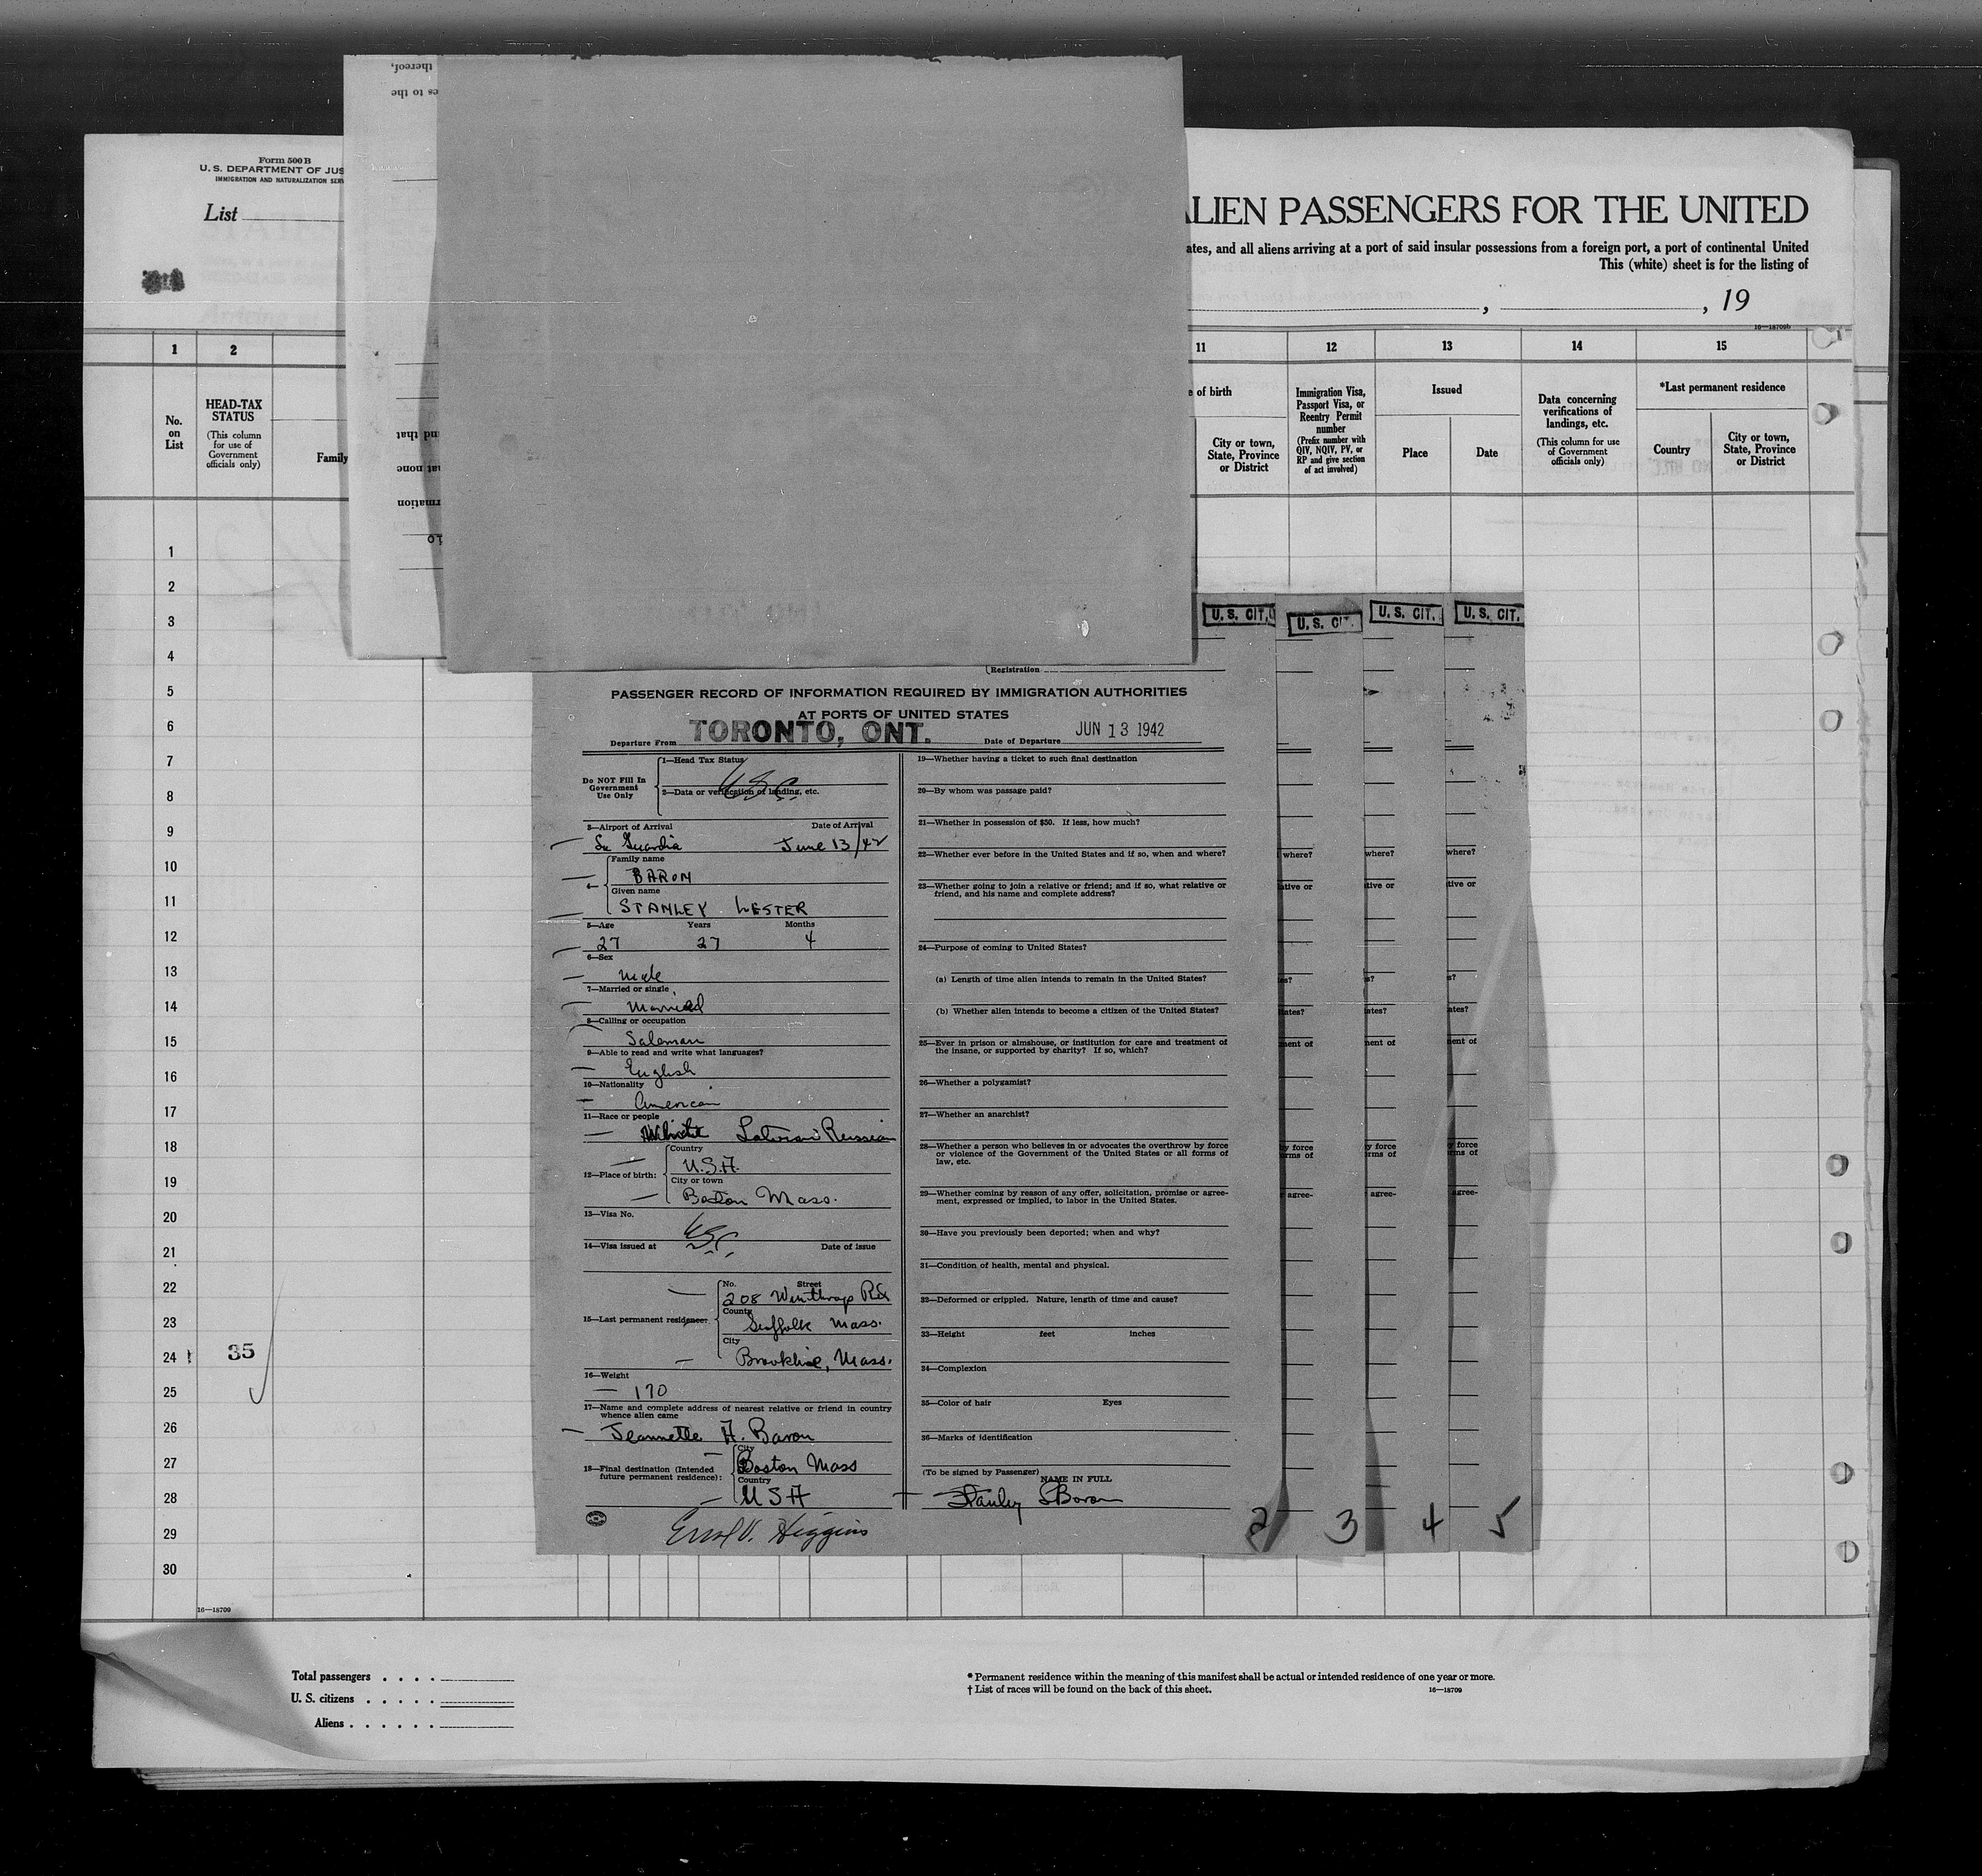 thereof,
es to the
Form 500 B
U. S. DEPARTMENT OF JUS
IMMIGRATION AND NATURALIZATION SER
List
ALIEN PASSENGERS FOR THE UNITED
ates, and all aliens arriving at a port of said insular possessions from a foreign port, a port of continental United
This (white) sheet is for the listing of
, , 19
16—18709b
1 2 11 12 13 14 15
No. on List
HEAD-TAX STATUS
(This column for use of Government officials only)
Family
e of birth
City or town, State, Province or District
Immigration Visa, Passport Visa, or Reentry Permit number
(Prefix number with QIV, NQIV, PV, or RP and give section of act involved)
Issued
Place Date
Data concerning verifications of landings, etc.
(This column for use of Government officials only)
*Last permanent residence
Country
City or town, State, Province or District
nd that
at none
rmation
1
2
3
4
5
6
7
8
9
10
11
12
13
14
15
16
17
18
19
20
21
22
23
24 35
25
26
27
28
29
30
U. S. CIT. U. S. CIT. U. S. CIT. U. S. CIT.
Registration
PASSENGER RECORD OF INFORMATION REQUIRED BY IMMIGRATION AUTHORITIES
AT PORTS OF UNITED STATES
Departure From TORONTO, ONT. Date of Departure JUN 13 1942
Do NOT Fill In Government Use Only
1—Head Tax Status
USC
2—Data or verification of landing, etc.
3—Airport of Arrival Date of Arrival
La Guardia June 13/42
Family name
BARON
4
Given name
STANLEY LESTER
5—Age Years Months
27 27 4
6—Sex
Male
7—Married or single
Married
8—Calling or occupation
Saleman
9—Able to read and write what languages?
English
10—Nationality
American
11—Race or people
Latvian Russian
12—Place of birth:
Country
U.S.A.
City or town
Boston Mass.
13—Visa No.
USC
14—Visa issued at Date of issue
15—Last permanent residence:
No. Street
208 Winthrop Rd
County
Suffolk Mass.
City
Brookline, Mass.
16—Weight
170
17—Name and complete address of nearest relative or friend in country
whence alien came
Jeannette H. Baron
18—Final destination (Intended future permanent residence):
City
Boston Mass
Country
USA
19—Whether having a ticket to such final destination
20—By whom was passage paid?
21—Whether in possession of $50. If less, how much?
22—Whether ever before in the United States and if so, when and where?
23—Whether going to join a relative or friend; and if so, what relative or
friend, and his name and complete address?
24—Purpose of coming to United States?
(a) Length of time alien intends to remain in the United States?
(b) Whether alien intends to become a citizen of the United States?
25—Ever in prison or almshouse, or institution for care and treatment of
the insane, or supported by charity? If so, which?
26—Whether a polygamist?
27—Whether an anarchist?
28—Whether a person who believes in or advocates the overthrow by force
or violence of the Government of the United States or all forms of
law, etc.
29—Whether coming by reason of any offer, solicitation, promise or agree-
ment, expressed or implied, to labor in the United States.
30—Have you previously been deported; when and why?
31—Condition of health, mental and physical.
32—Deformed or crippled. Nature, length of time and cause?
33—Height feet inches
34—Complexion
35—Color of hair Eyes
36—Marks of identification
(To be signed by Passenger)
NAME IN FULL
Stanley L Baron
Higgins
2 3 4 5
where? where? where?
ative or tive or tive or
es? s? s?
tates? ates? ates?
ment of nent of ent of
by force y force y force
orms of rms of rms of
r agree- agree- agree-
16—18709
Total passengers . . . .
U. S. citizens . . . . .
Aliens . . . . . .
* Permanent residence within the meaning of this manifest shall be actual or intended residence of one year or more.
† List of races will be found on the back of this sheet.
16—18709